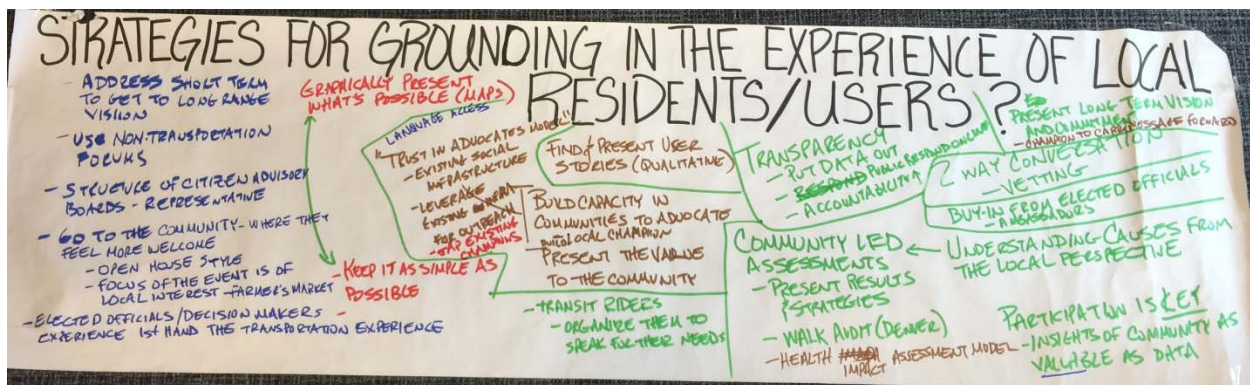 STRATEGIES FOR GROUNDING IN THE EXPERIENCE OF LOCAL
RESIDENTS/USERS?
- ADDRESS SHORT TERM
TO GET TO LONG RANGE
VISION
- USE NON-TRANSPORTATION
FORUMS
- STRUCTURE OF CITIZEN ADVISORY
BOARDS - REPRESENTATIVE
- GO TO THE COMMUNITY - WHERE THEY
FEEL MORE WELCOME
- OPEN HOUSE STYLE
- FOCUS OF THE EVENT IS OF
LOCAL INTEREST - FARMER'S MARKET
- ELECTED OFFICIALS/DECISION MAKERS -
EXPERIENCE 1ST HAND THE TRANSPORTATION EXPERIENCE
GRAPHICALLY PRESENT
WHAT'S POSSIBLE (MAPS)
- KEEP IT AS SIMPLE AS
POSSIBLE
LANGUAGE ACCESS
"TRUST IN ADVOCATES MODEL"
- EXISTING SOCIAL
INFRASTRUCTURE
- LEVERAGE
EXISTING
FOR OUTREACH
- TAP EXISTING
CHAMPIONS
FIND & PRESENT USER
STORIES (QUALITATIVE)
BUILD CAPACITY IN
COMMUNITIES TO ADVOCATE
LOCAL CHAMPION
- PRESENT THE VALUE
TO THE COMMUNITY
- TRANSIT RIDERS
- ORGANIZE THEM TO
SPEAK FOR THEIR NEEDS
TRANSPARENCY
- PUT DATA OUT
- RESPOND PUBLIC RESPONDING
- ACCOUNTABILITY
COMMUNITY LED
ASSESSMENTS
- PRESENT RESULTS
& STRATEGIES
- WALK AUDIT (DENVER)
- HEALTH IMPACT ASSESSMENT MODEL
PRESENT LONG TERM VISION
AND COMMITMENT
- CHAMPION TO CARRY MESSAGE FORWARD
2 WAY CONVERSATION
- VETTING
BUY-IN FROM ELECTED OFFICIALS
- AMBASSADORS
UNDERSTANDING CAUSES FROM
THE LOCAL PERSPECTIVE
PARTICIPATION IS KEY
- INSIGHTS OF COMMUNITY AS
VALUABLE AS DATA